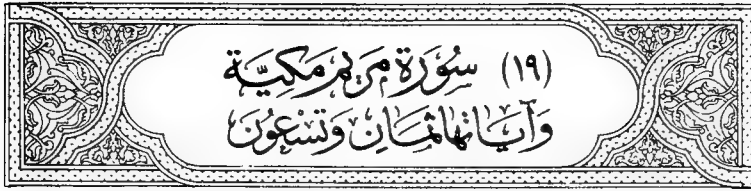 (١٩) سُورَة مَرْيَم مَكِيَّة
وَآيَاتهَا ثمَانِ وَتِسْعُونَ